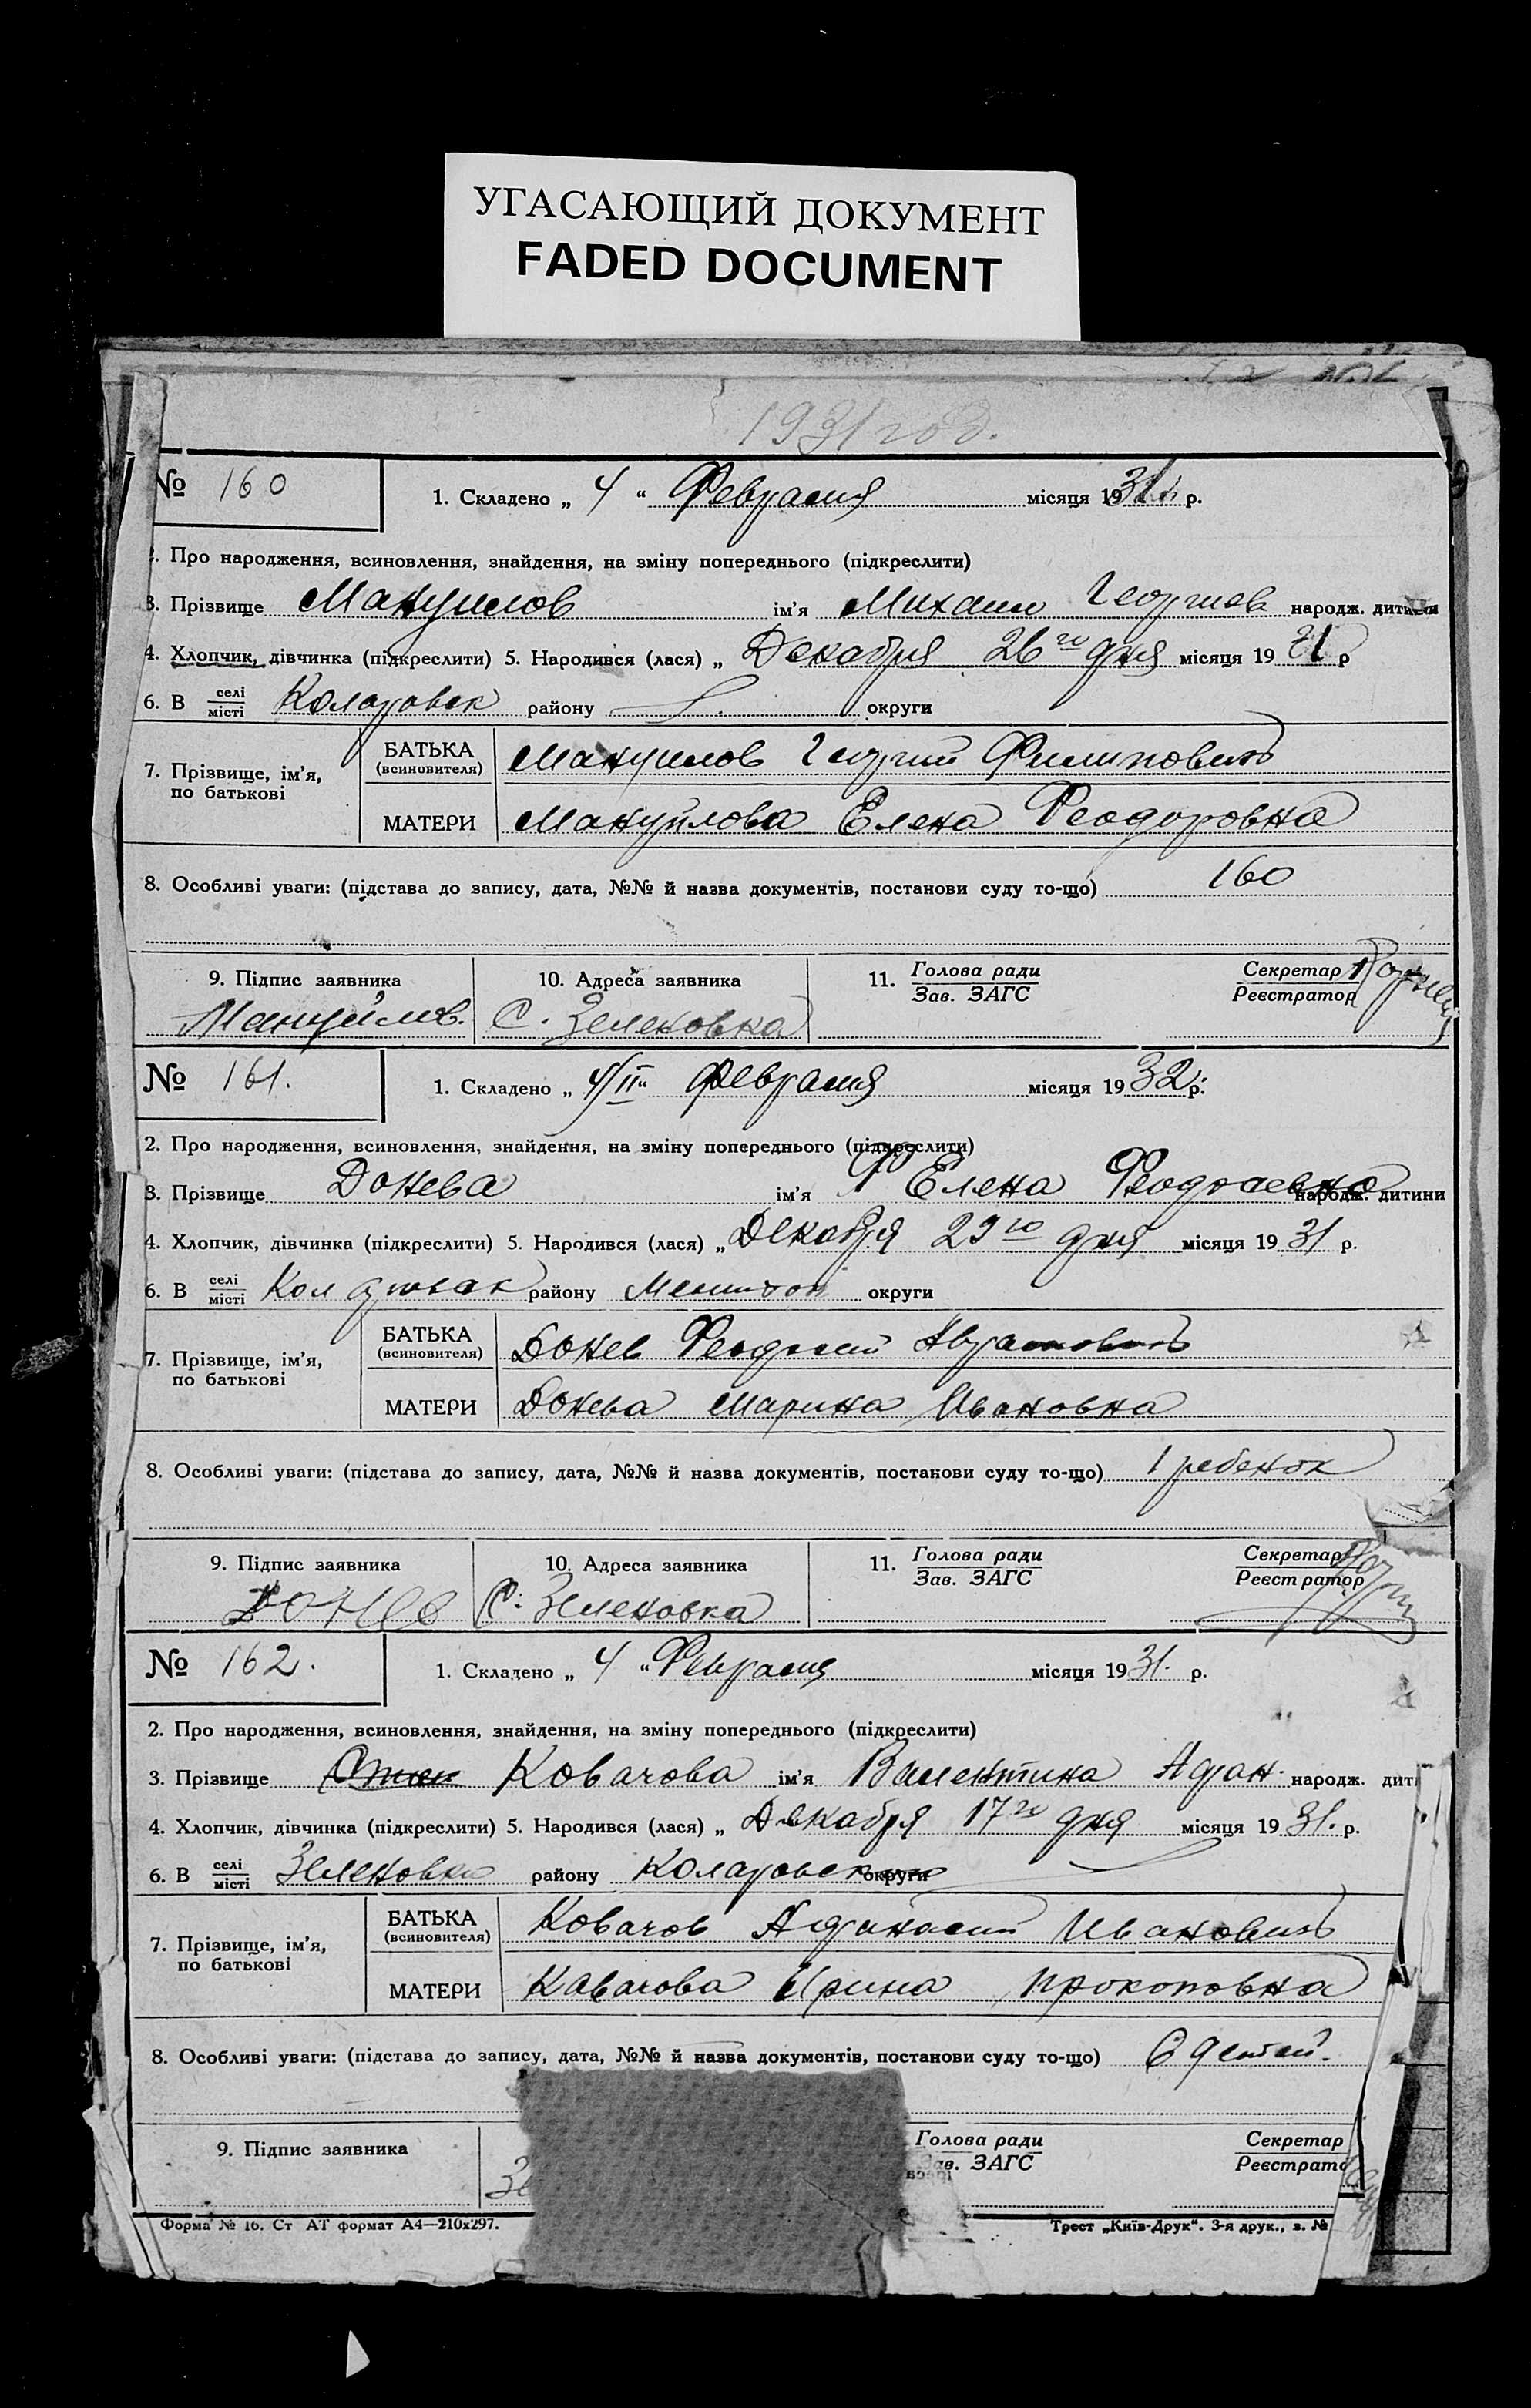 УГАСАЮЩИЙ ДОКУМЕНТ
FADED DOCUMENT
1931 год.
№ 160
1. Складено „ 4 “ Февраля місяця 1931 р.
2. Про народження, всиновлення, знайдення, на зміну попереднього (підкреслити)
3. Прізвище Мануилов ім'я Михаил Георгиев народж. дитини
4. Хлопчик, дівчинка (підкреслити) 5. Народився (лася) „ Декабря 26го дня місяця 19 31 р
6. В селі місті Коларовск району округи
7. Прізвище, ім'я, по батькові
БАТЬКА (всиновителя) Мануилов Георгий Филипович
МАТЕРИ Мануйлова Елена Феодоровна
8. Особливі уваги: (підстава до запису, дата, №№ й назва документів, постанови суду то-що) 160
9. Підпис заявника 10. Адреса заявника 11. Голова ради Зав. ЗАГС Секретар Реєстратор
Мануйлов. С. Зеленовка
№ 161.
1. Складено „ 4/II “ Февраля місяця 19 32 р.
2. Про народження, всиновлення, знайдення, на зміну попереднього (підкреслити)
3. Прізвище Донева ім'я Елена народж. дитини
4. Хлопчик, дівчинка (підкреслити) 5. Народився (лася) „ Декабря 29го дня місяця 19 31 р.
6. В селі місті Коларовск району округи
7. Прізвище, ім'я, по батькові
БАТЬКА (всиновителя) Донев
МАТЕРИ Донева Марина Ивановна
8. Особливі уваги: (підстава до запису, дата, №№ й назва документів, постанови суду то-що) 1 ребенок
9. Підпис заявника 10. Адреса заявника 11. Голова ради Зав. ЗАГС Секретар Реєстратор
Донев С. Зеленовка
№ 162.
1. Складено „ 4 “ Февраля місяця 19 31. р.
2. Про народження, всиновлення, знайдення, на зміну попереднього (підкреслити)
3. Прізвище Ковачова ім'я Валентина Афан. народж. дит
4. Хлопчик, дівчинка (підкреслити) 5. Народився (лася) „ Декабря 17го дня місяця 19 31. р.
6. В селі місті Зеленовка району Коларовск округи
7. Прізвище, ім'я, по батькові
БАТЬКА (всиновителя) Ковачов Афанасий Иванович
МАТЕРИ Кавачова Ирина Прокоповна
8. Особливі уваги: (підстава до запису, дата, №№ й назва документів, постанови суду то-що) 6 детей.
9. Підпис заявника Голова ради Зав. ЗАГС Секретар Реєстрато
Форма № 16. Ст АТ формат А4—210х297. Трест „Київ-Друк“. 3-я друк., з. №